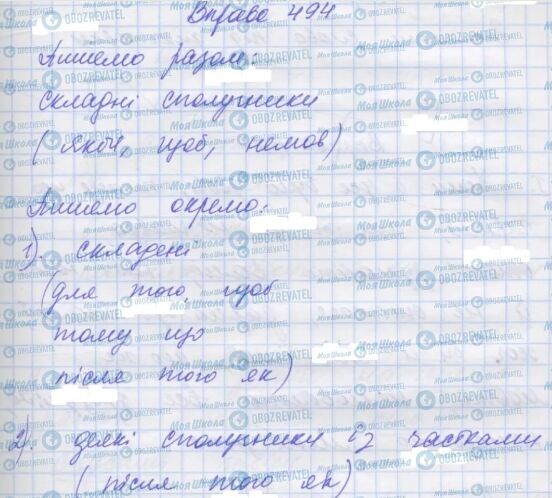 Вправа 494
Пишемо разом:
складні сполучники
(якби, щоб, немов)
Пишемо окремо:
1). складені
(для того, щоб
тому що
після того як)
2). деякі сполучники із частками
(після того як)